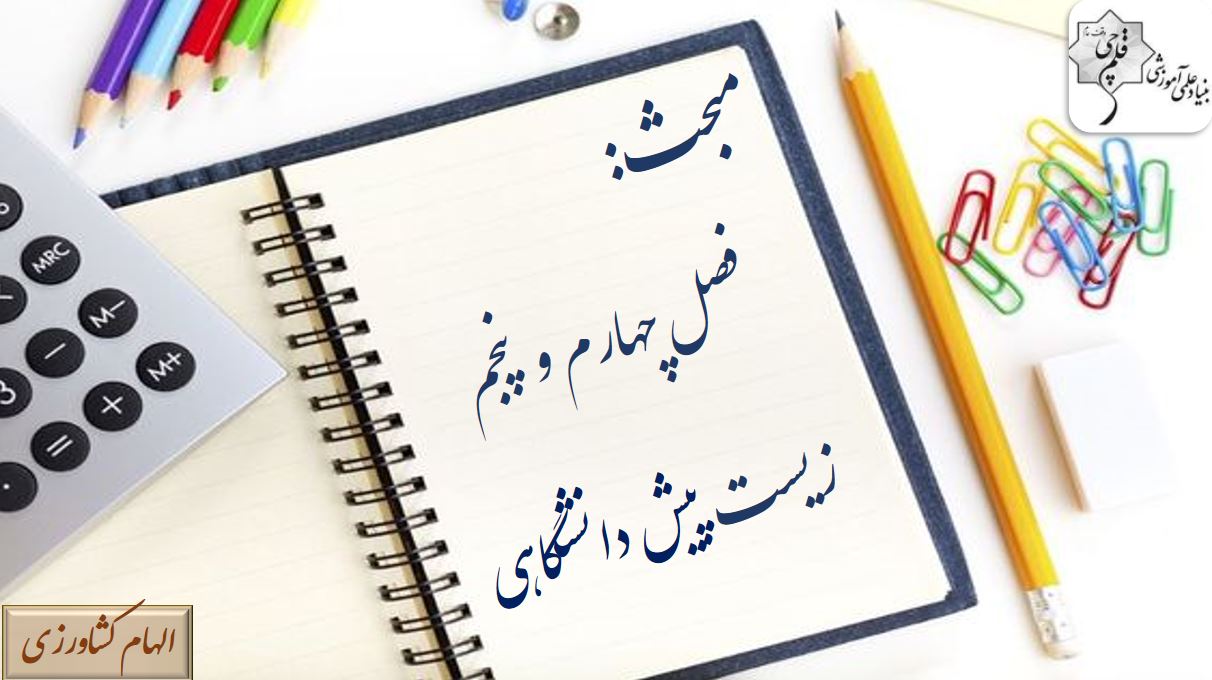 مبحث:
فصل چهارم و پنجم
زیست پیش دانشگاهی
وقف عام
قلم چی
بنیاد علمی آموزشی
MRC
M−
M+
−
+
=
3
.
الهام کشاورزی